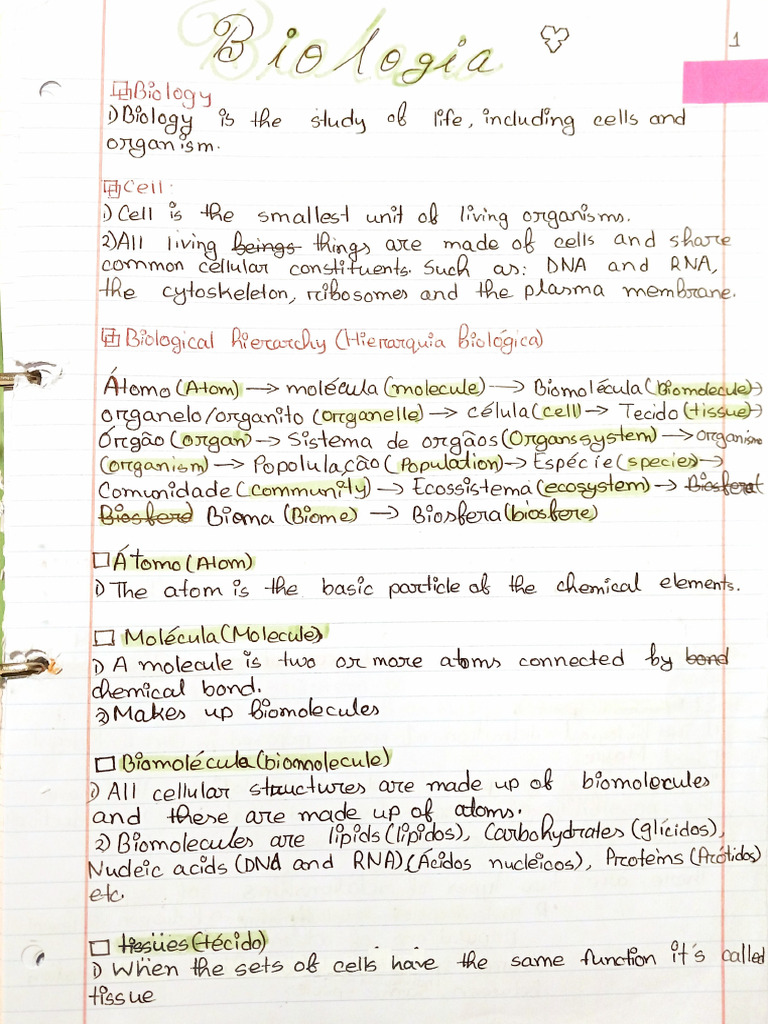 Biologia
1
Biology
1) Biology is the study of life, including cells and
organism.
Cell.
1) Cell is the smallest unit of living organisms.
2) All living beings things are made of cells and share
common cellular constituents. Such as: DNA and RNA,
the cytoskeleton, ribosomes and the plasma membrane.
Biological hierarchy (Hierarquia biológica)
Átomo (Atom) → molécula (molecule) → Biomolécula (Biomolecule) →
organelo/organito (organelle) → célula (cell) → Tecido (tissue) →
Órgão (organ) → Sistema de orgãos (Organssystem) → organismo
(organism) → Popolulação (Population) → Espécie (species) →
Comunidade (community) → Ecossistema (ecosystem) → Biosferat
Biosfere Bioma (Biome) → Biosfera (biosfere)
Átomo (Atom)
1) The atom is the basic particle of the chemical elements.
Molécula (Molecule)
1) A molecule is two or more atoms connected by bond
chemical bond.
2) Makes up biomolecules
Biomolécula (biomolecule)
1) All cellular structures are made up of biomolecules
and these are made up of atoms.
2) Biomolecules are lipids (lípidos), Carbohydrates (glícidos),
Nucleic acids (DNA and RNA) (Ácidos nucleicos), Proteins (Prótidos)
etc.
tissues (técido)
1) When the sets of cells have the same function it's called
tissue